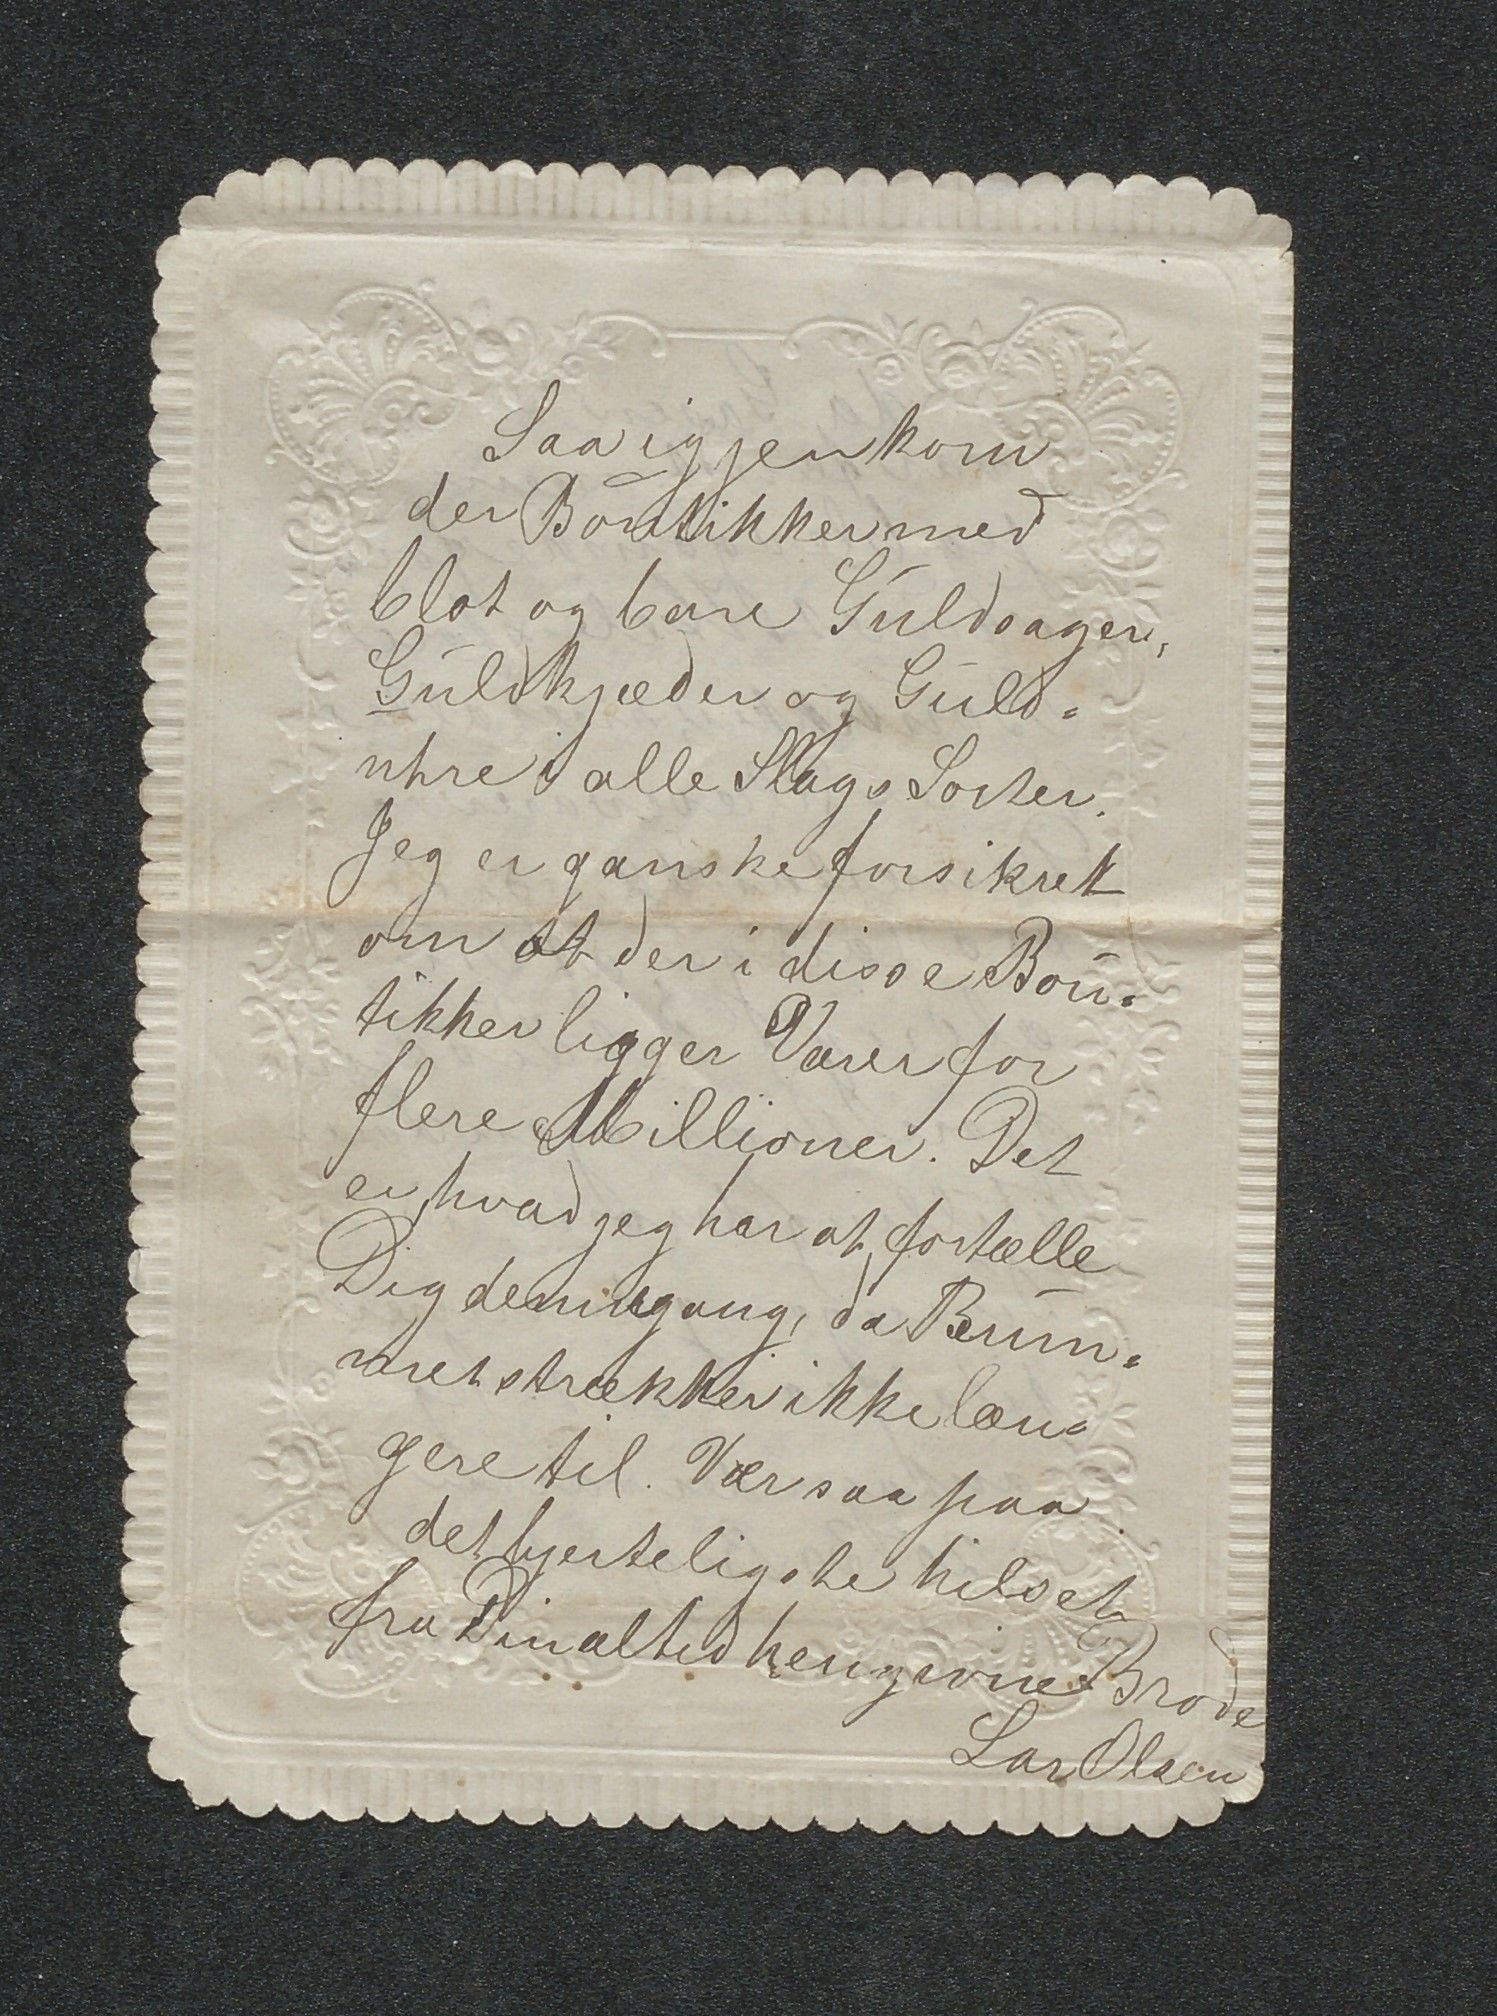 Saa igjen kom
der Boutikker med
blot og bare Guldsager,
Guldkjæder og Guld-
uhre i alle Slags Sorter.
Jeg er ganske forsikret
om at der i disse Bou-
tikker ligger Varer for
flere Millioner. Det
er hvad jeg har at fortælle
Dig dennegang, da Rum-
met strækker ikke læn-
gere til. Vær saa paa
det hjerteligste hilset
fra Din altid hengivne Brode
Lar Olsen